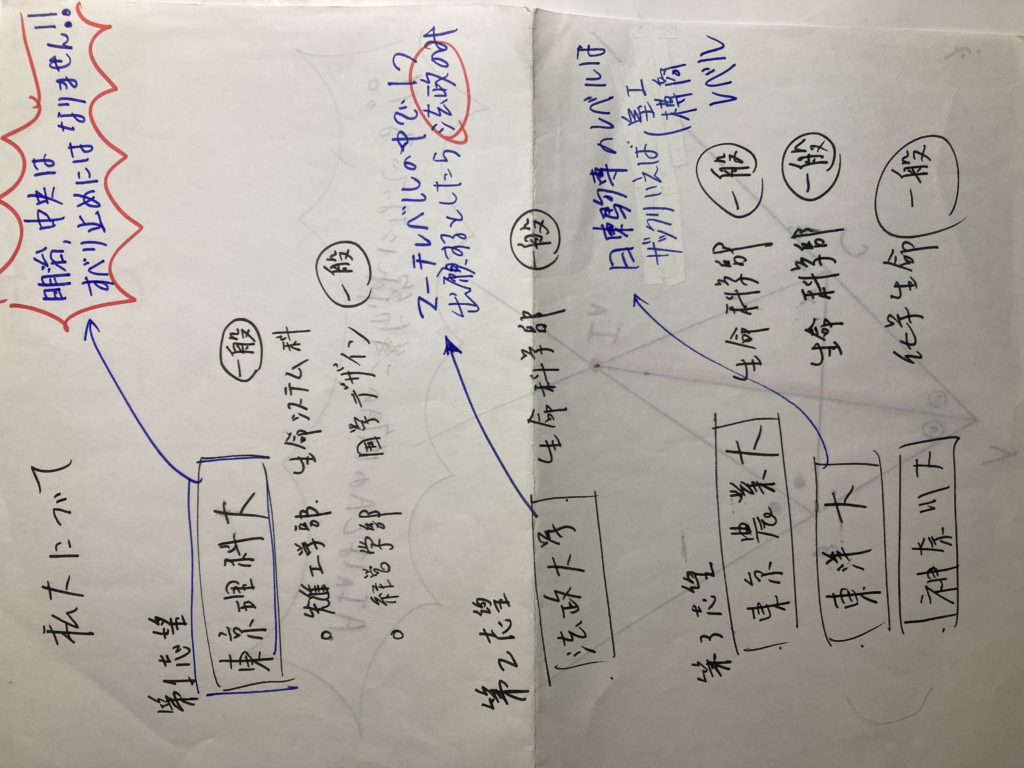 私大について
明治,中央は
すべり止めにはなりません!!
第1志望
東京理科大
。先進工学部. 生命システム科 一般
。経営学部 国学デザイン 一般
マーチレベルの中で1?
出願するとしたら法政のみ
第2志望
法政大学 生命科学部 一般
日東駒専のレベルは
ザックリいえば
レベル
第3志望
東京農業大 生命科学部 一般
東洋大 生命科学部 一般
神奈川大 化学生命 一般